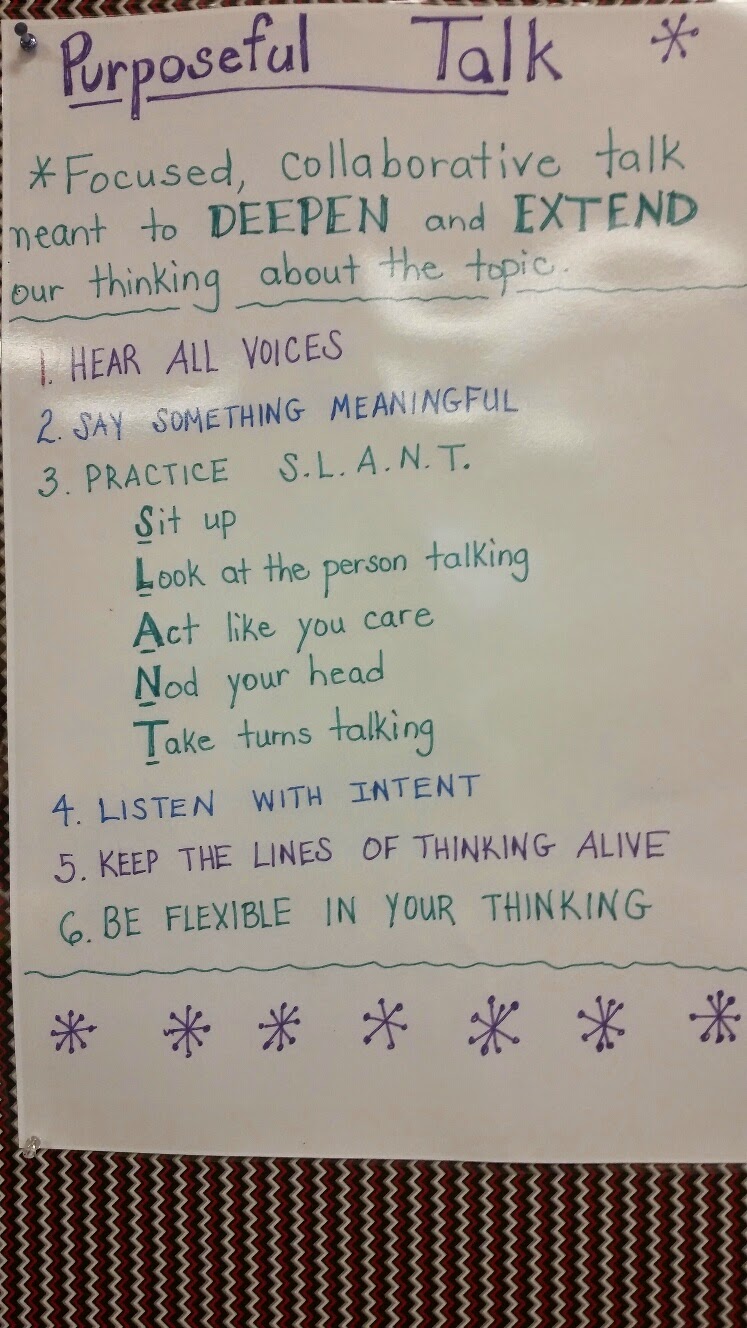 Purposeful Talk
*Focused, collaborative talk
meant to DEEPEN and EXTEND
our thinking about the topic.
1. HEAR ALL VOICES
2. SAY SOMETHING MEANINGFUL
3. PRACTICE S.L.A.N.T.
Sit up
Look at the person talking
Act like you care
Nod your head
Take turns talking
4. LISTEN WITH INTENT
5. KEEP THE LINES OF THINKING ALIVE
6. BE FLEXIBLE IN YOUR THINKING